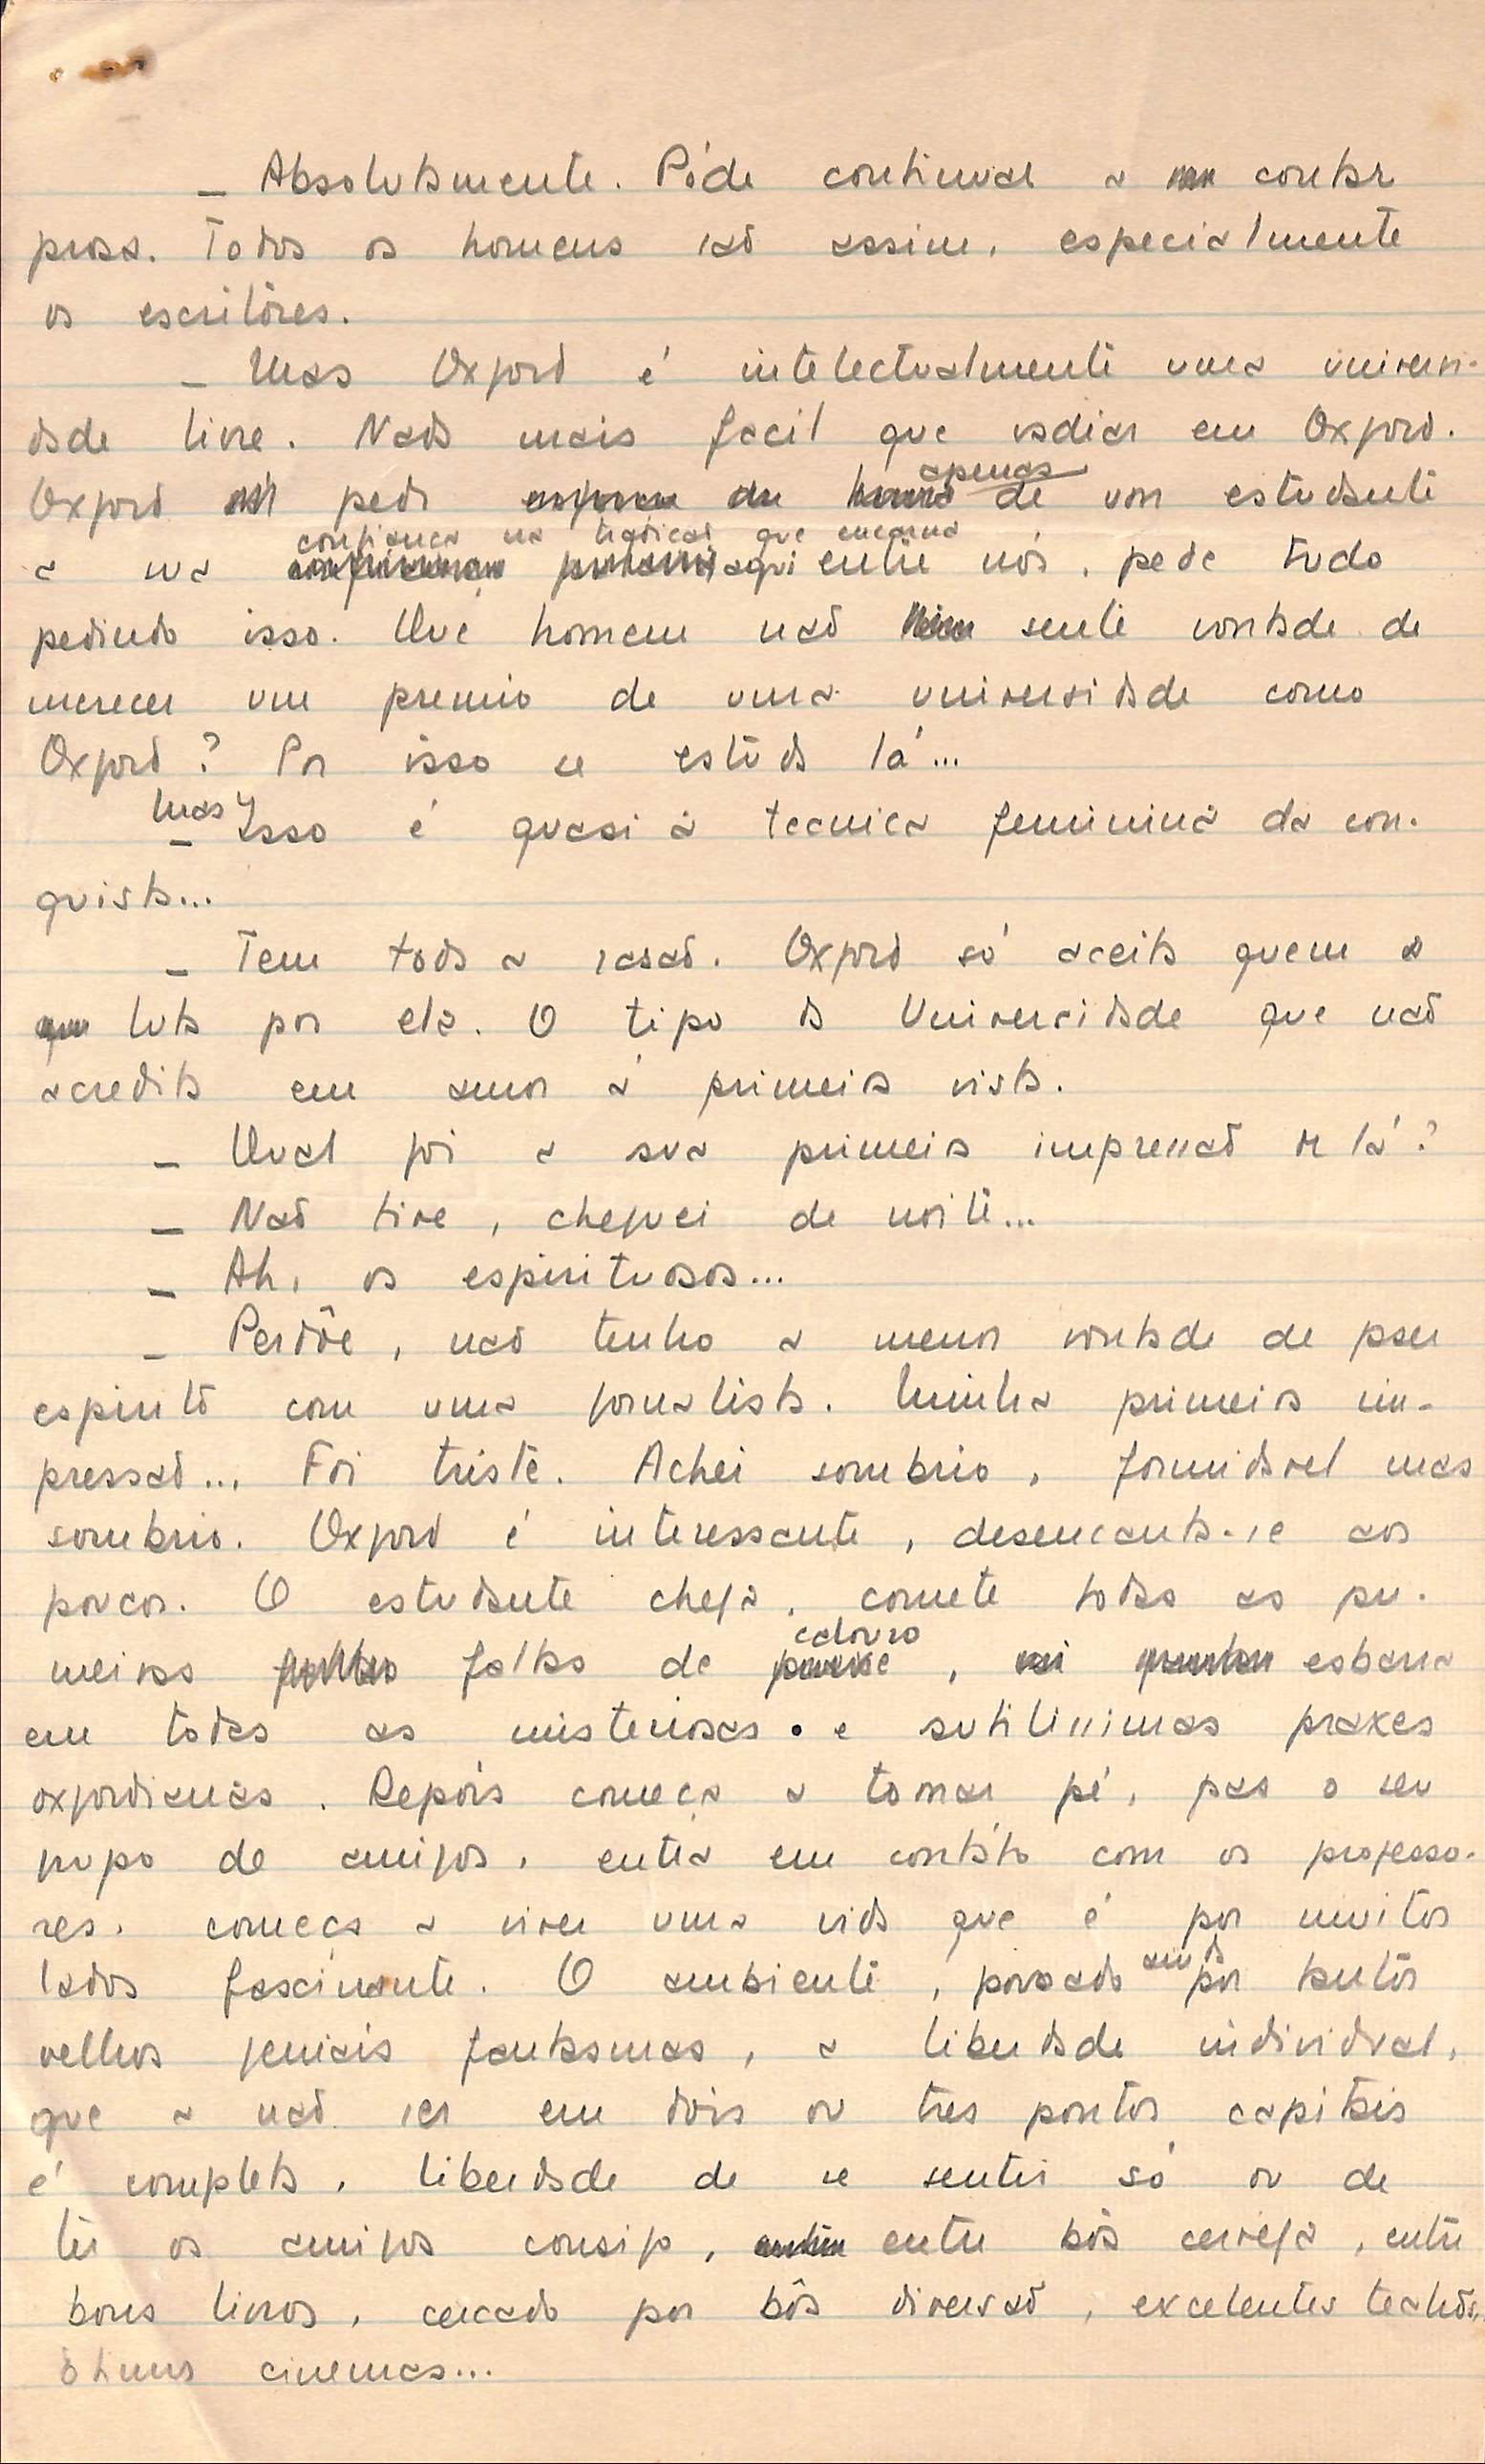 — Absolutamente. Póde continuar a contar
prosa. Todos os homens são assim, especialmente
os escritôres.
— Mas Oxford é intelectualmente uma universi-
dade livre. Nada mais facil que vadiar em Oxford.
apenas
Oxford pede de um estudante
confiança na tradição que encarna
a sua aqui entre nós, pede tudo
pedindo isso. Que homem não sente vontade de
merecer um premio de uma universidade como
Oxford? Por isso se estuda lá...
— Mas isso é quasi a tecnica feminina da con-
quista...
— Tem toda a rasão. Oxford só aceita quem
luta por ela. O tipo da Universidade que não
acredita em amor á primeira vista.
— Qual foi a sua primeira impressão de lá?
— Não tive, cheguei de noite...
— Ah, os espirituosos...
— Perdôe, não tenho a menor vontade de fazer
espirito com uma jornalista. Minha primeira im-
pressão... Foi triste. Achei sombrio, formidavel mas
sombrio. Oxford é interessante, desencanta-se aos
poucos. O estudante chega, comete todas as pri-
calouro
meiras faltas de , esbarra
em todas as misteriosas e sutilissimas praxes
oxfordianas. Depois começa a tomar pé, faz o seu
grupo de amigos, entra em contáto com os professo-
res, começa a viver uma vida que é por muitos
ainda
lados fascinante. O ambiente, povoado por tantos
velhos geniais fantasmas, a liberdade individual,
que a não ser em dois ou tres pontos capitais
é completa, liberdade de se sentir só ou de
ter os amigos consigo, entre bôa cerveja, entre
bons livros, cercado por bôa diversão, excelentes teatros,
ótimos cinemas...